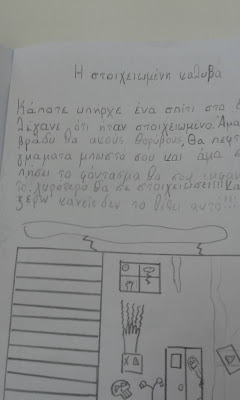 Η στοιχειωμένη καλυβα
Κάποτε υπηρχε ένα σπίτι στα
λέχανε ότι ηταν στοιχειωμενο. Αμα
βράδυ θα ακους θορύβους, θα πεφτ
γματα μπωστο σου και άμα σ
πησει το φάντασμα θα σου
το χυρότερο θα σε στοιχειώσει!!! Κα
ξέρω κανεις δεν το αυτό!!!